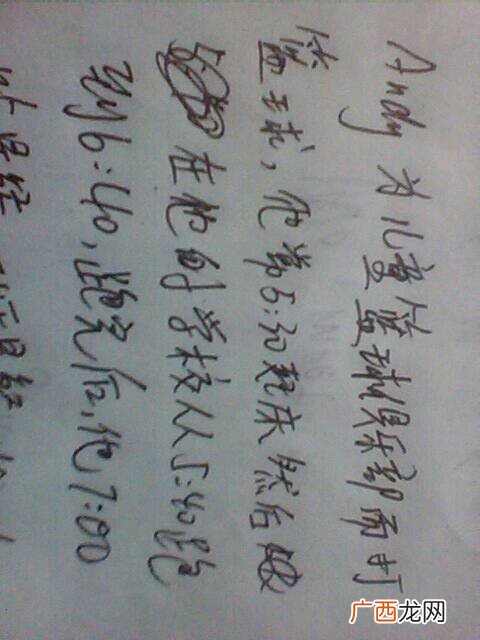 Andy 为儿童篮球俱乐部而打
篮球,他第5:30起床然后
在他的学校从5:40跑
到6:40,跑完后,他7:00
广西龙网